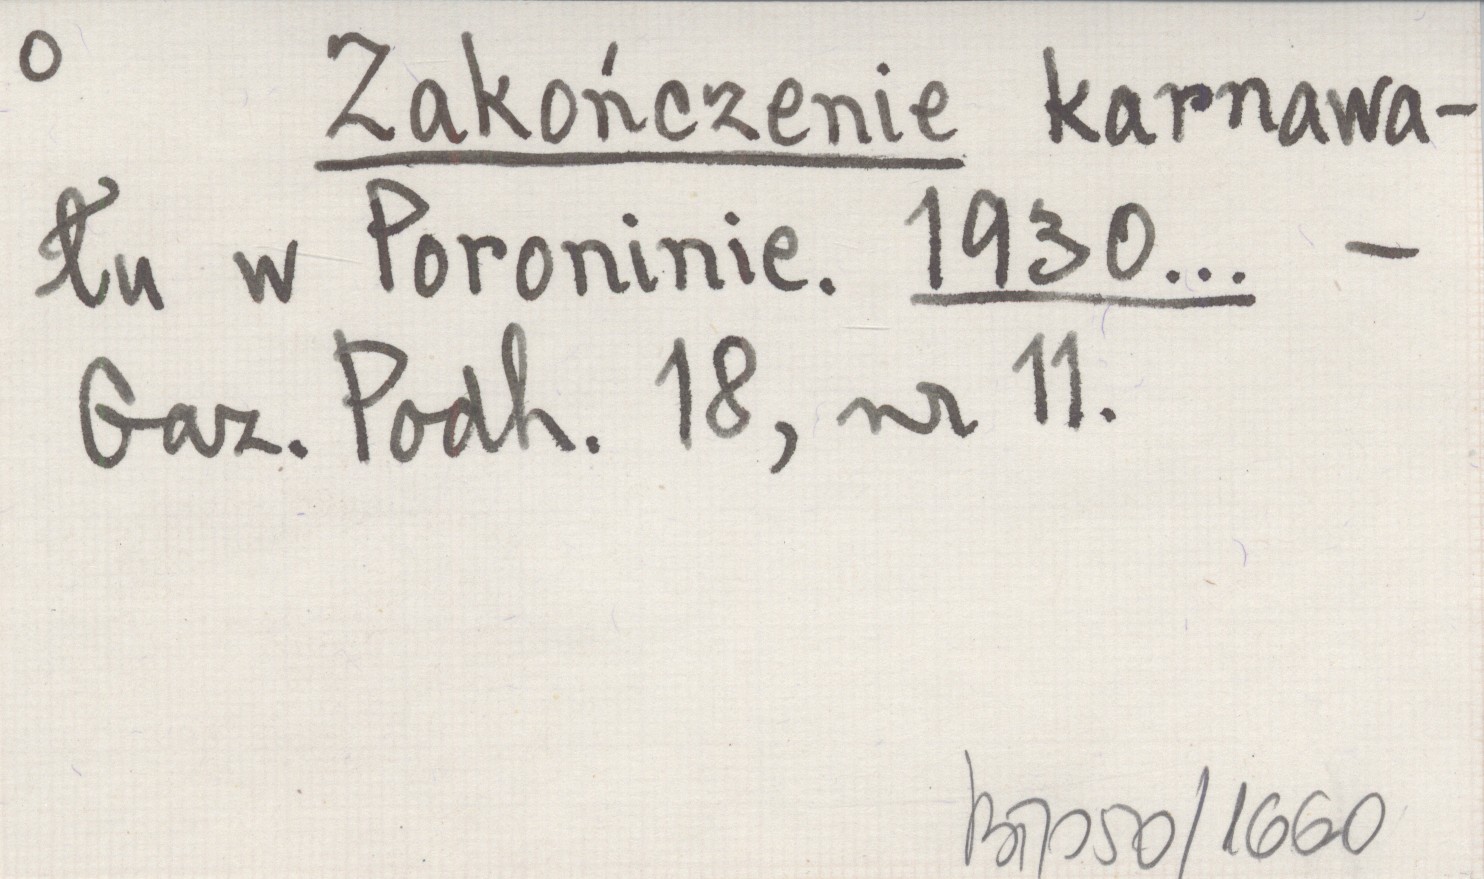 o Zakończenie karnawa-
łu w Poroninie. 1930... -
Gaz. Podh. 18, nr 11.
/1660